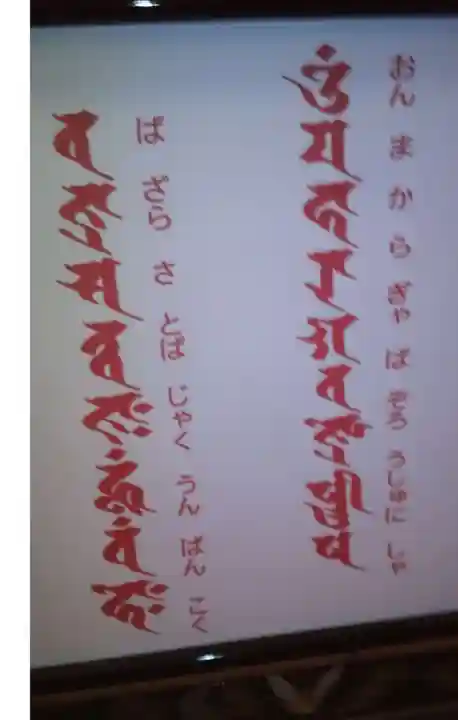 おん ま か ら ぎゃ ば ぞろ うしゅに しゃ
𑖌𑖼 𑖦 𑖮𑖯 𑖨𑖯 𑖐 𑖪 𑖕𑖿𑖨𑖺 𑖬𑖿𑖜𑖱 𑖬
ば ざら さ とば じゃく うん ばん こく
𑖪 𑖕𑖿𑖨 𑖭 𑖝𑖿𑖪 𑖕𑖾 𑖮𑖳𑖽 𑖪𑖽 𑖮𑖺𑖾